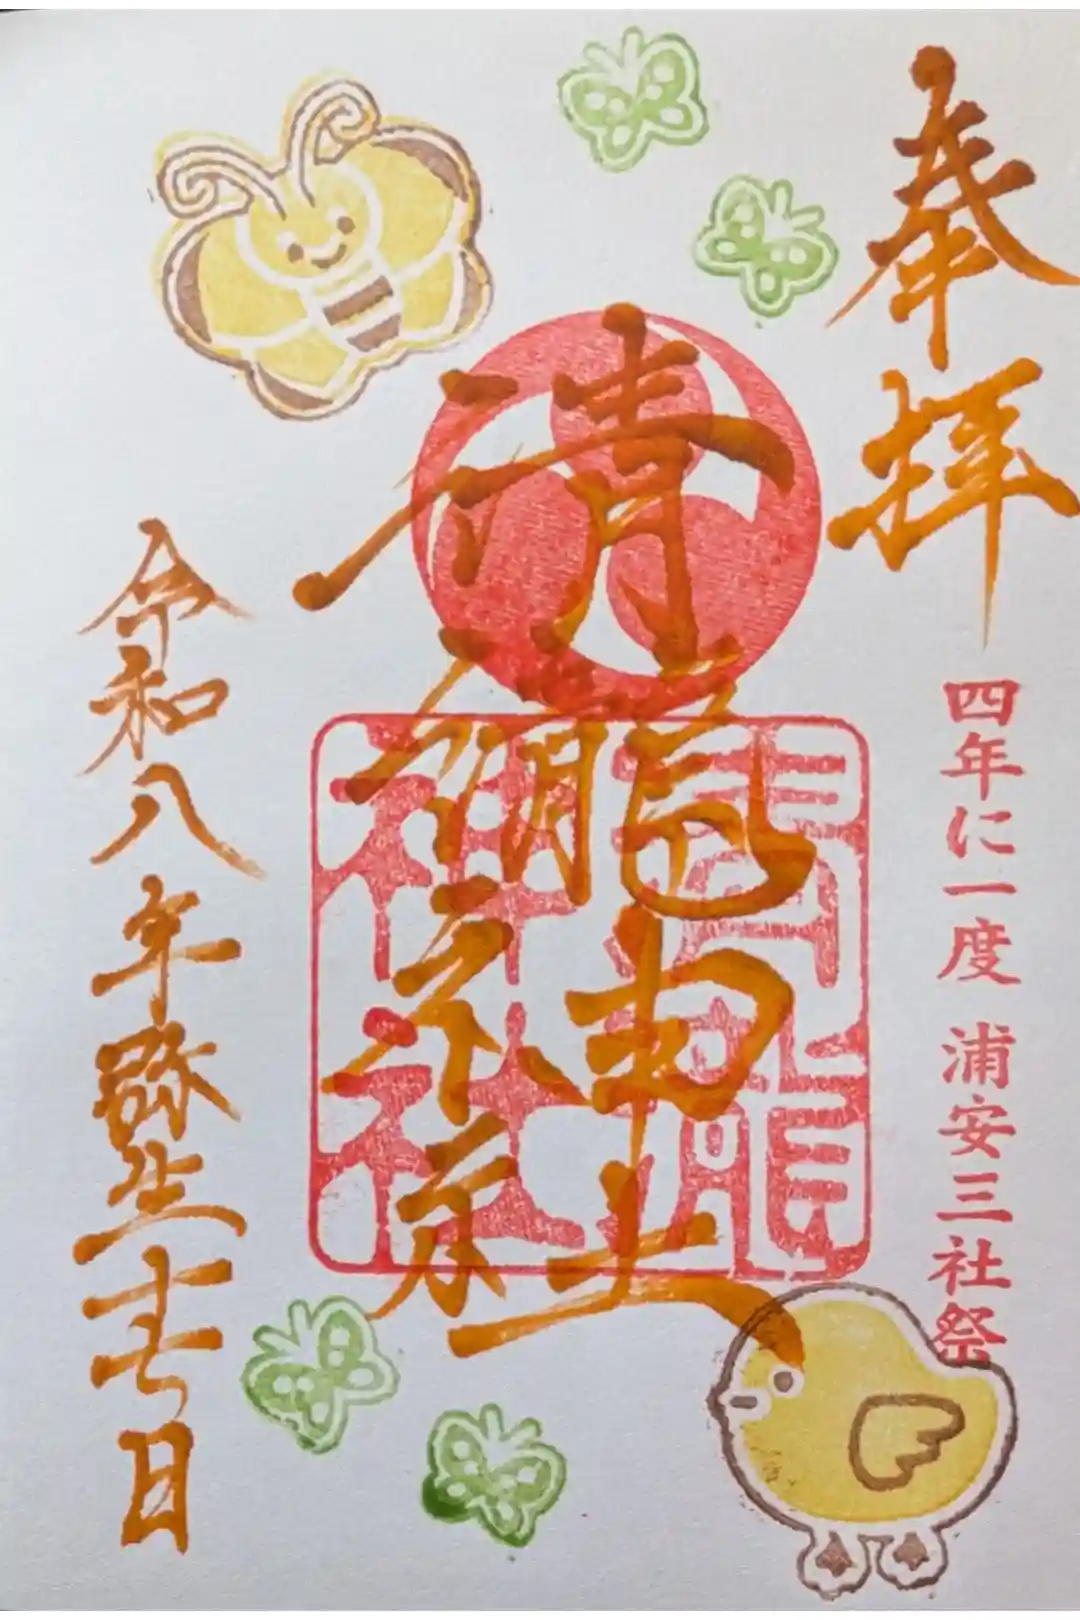 奉拝
四年に一度 浦安三社祭
清瀧神社
清瀧
神社
令和八年弥生十七日